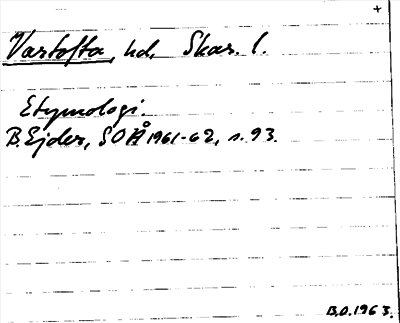 +
Vartofta, hd, Skar. l.
Etymologi.
B. Ejder, SOÅ 1961-62, s. 93.
B.O. 1963.